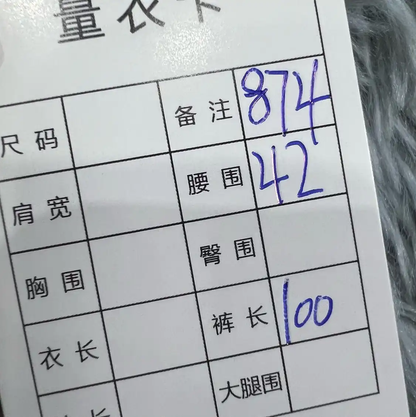 量衣卡
尺码 备注 874
肩宽 腰围 42
胸围 臀围
衣长 裤长 100
长 大腿围